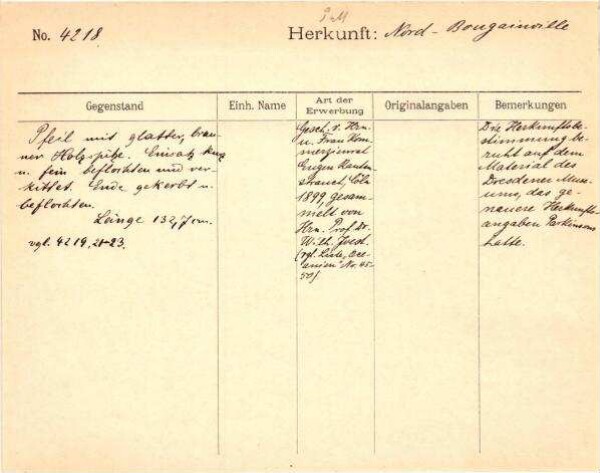 No. 4218.
Herkunft: Nord-Bougainville
Gegenstand
Einh. Name
Art der
Erwerbung
Originalangaben
Bemerkungen
Pfeil mit glatter, brau-
ner Holzspitze. Einsatz kurz
u. fein beflochten und ver-
kittet. Ende gekerbt u.
beflochten.
Länge 132,7 cm.
vgl. 4219, 21-23.
Gesch. v. Hrn.
u. Frau Kom-
merzienrat
Eugen Rauten-
strauch, Cöln
1899, gesam-
melt von
Hrn. Prof. Dr.
W. Joest.
(vgl. Liste "Oce-
anien" No. 45-
50)
Die Herkunftsbe-
stimmung be-
ruht auf dem
Material des
Dresdener Muse-
ums, das ge-
nauere Herkunfts-
angaben Parkinsons
hatte.